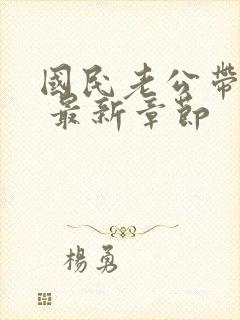 國民老公帶
最新章節
楊勇